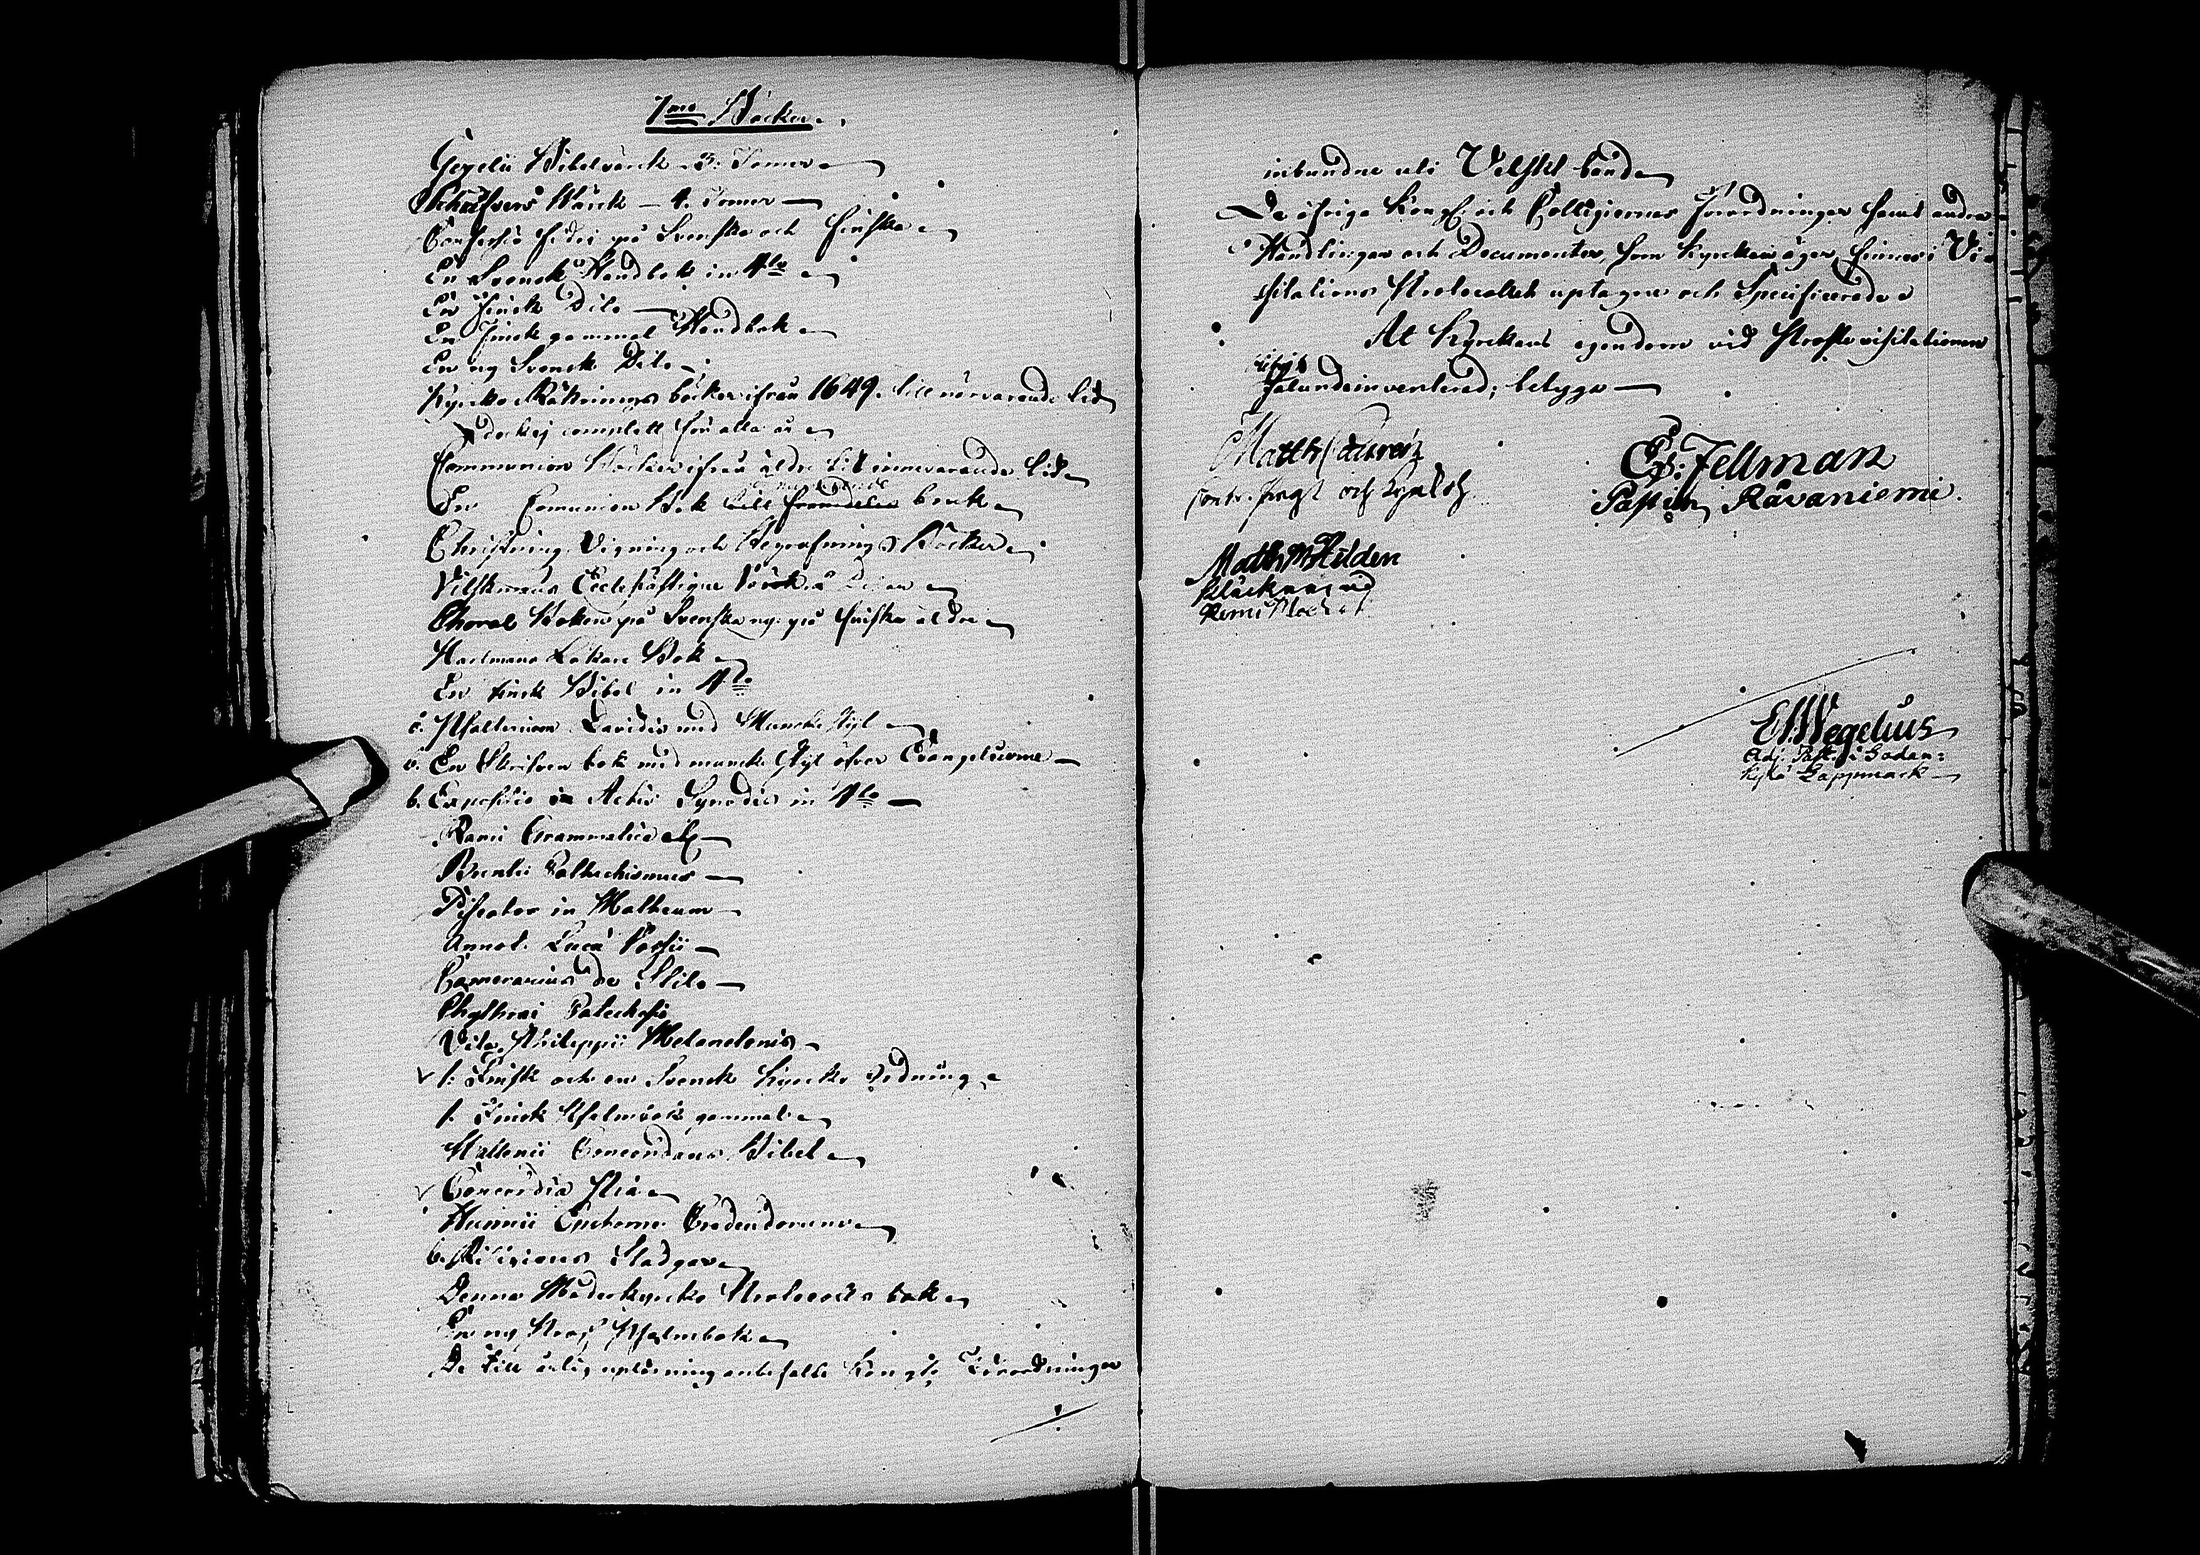 7mo Böcker.
Gezelii Bibelvärck 3. Tomer
Wärck - 4. Tomer
Confessio fidei på Svenska och finska
En Svensk Handbok in 4to
En finsk Dito
En finsk gammal Handbok
En ny Svensk Dito
Kyrcko Räknings böcker ifrån 1649. till närvarande tid
dock ej complett för alla år
Communion Böcker ifrån äldre tid innevarande tid
En Communion Bok till bruk
Christning Vigning och Begrafnings Böcker
Ecclesiastique Värck
Choral Boken på Svenska ny på finska äldre
Hartmans Läkare Bok
En finsk Bibel in 4to
Psalterium Davidis med Muncke Styl
En Skrifven bok med muncke Styl öfver Evangelierne
Expositio Actis Synodis in 4to
Rami Grammatica
Catechismus
Piscator in Matheum
Annot. Luca
Camerarius de Stilo
Chythrai Catechesis
Vita Philippii Melanctonis
1. Finsk och en Svensk Kyrcko Ordning
1. Finsk Psalmbok gammal
Concordans Bibel
Concordia Pia
Hunnii Epitome Credendorum
6. Religions Stadgar
Denna Moderkyrcko Protocolls bok
En ny Psalmbok
De till årlig upläsning anbefalte Kongl. Förordningar
inbundne uti Velskt band
De öfrige Kongl. och Collegiernes Förordningar samt andra
Handlingar och Documenter, som Kyrckan äger, finnes i Vi-
sitations Protocollet uptagne och Specificerade
At Kyrckans egendom vid Prosta visitationen
sålunda inventerad, betyga
Matth Lauren
Contr. Prost och Kyrkoh.
Es: Fellman
Past: in Råvaniemi.
Matth Hilden
Klåckare vid
Kemi
E Wegelius
Adj. Past: i Sodan-
kylä Lappmark